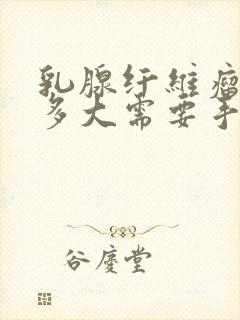 乳腺纤维瘤
多大需要手
谷慶堂